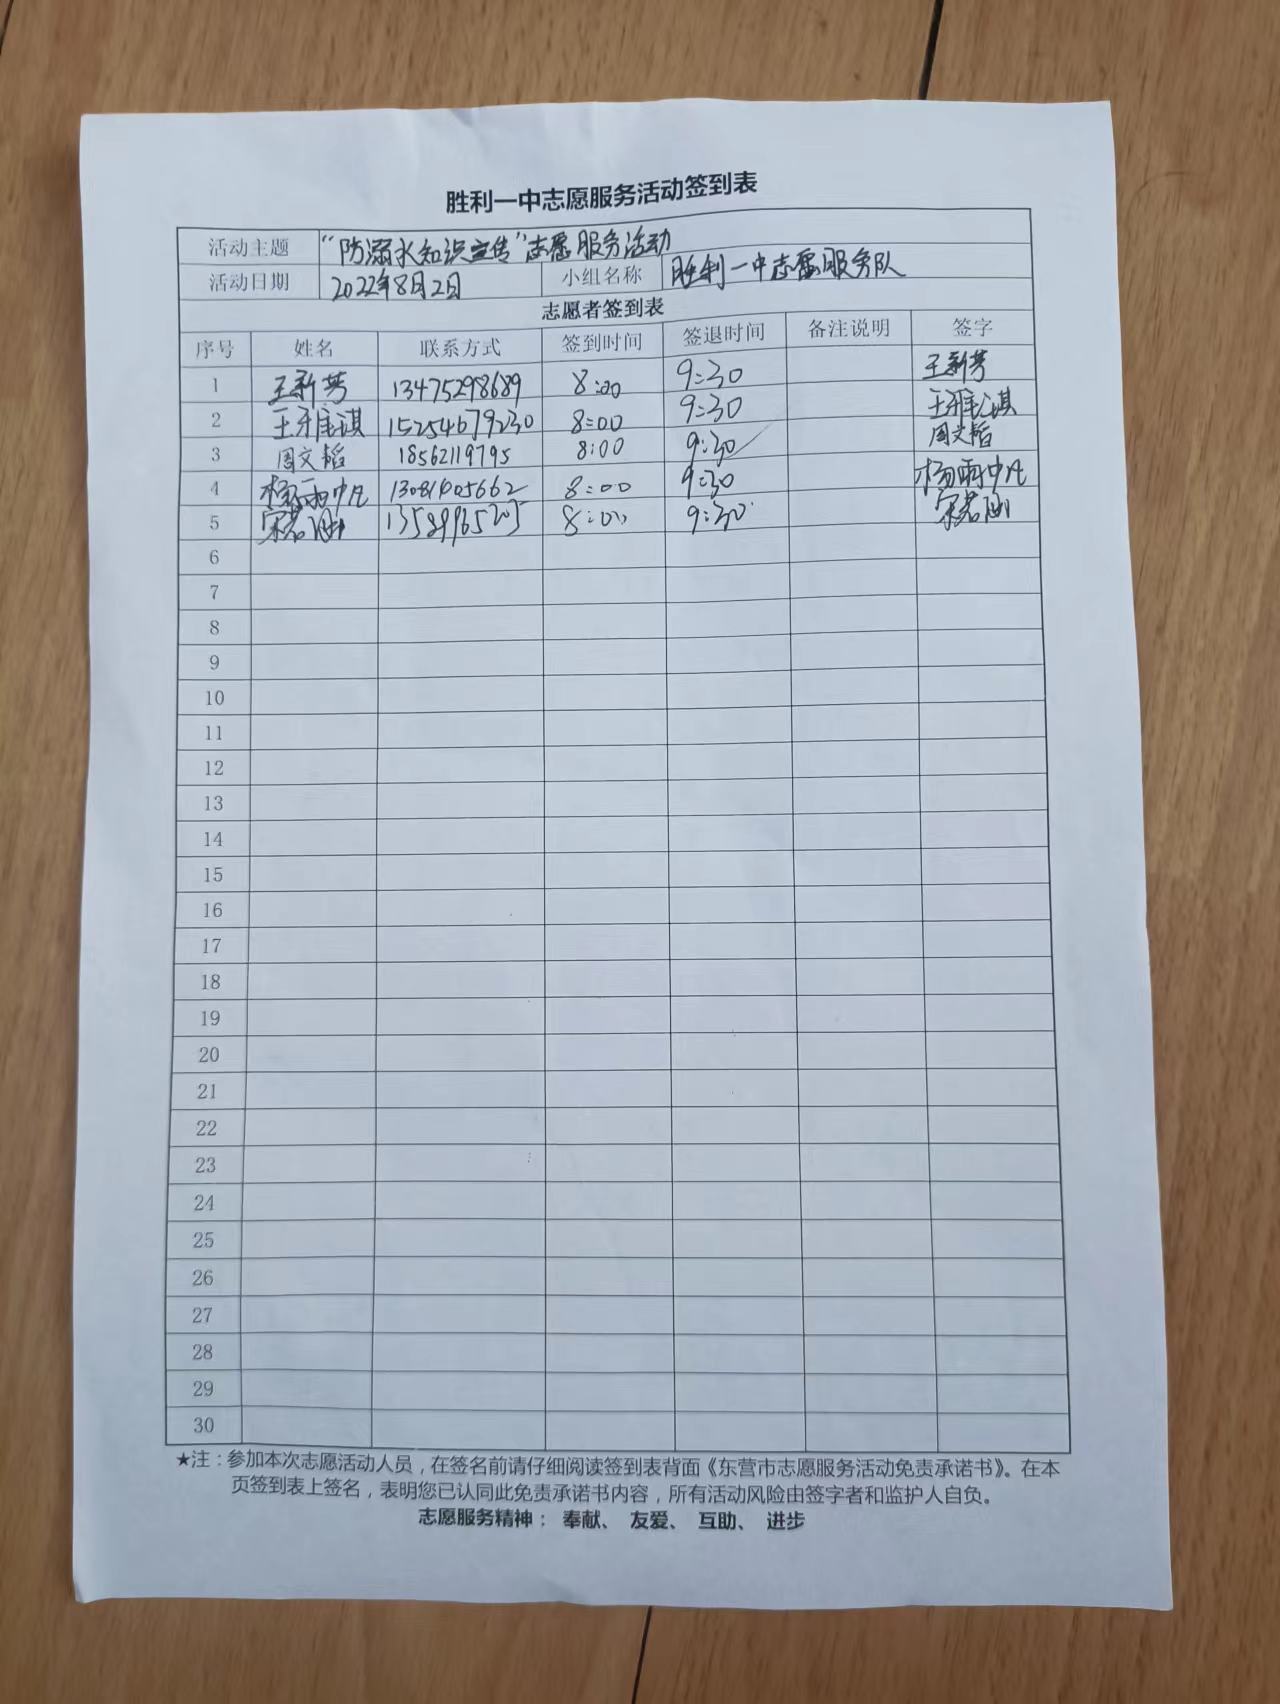 胜利一中志愿服务活动签到表
活动主题 “防溺水知识宣传”志愿服务活动
活动日期 2022年8月2日 小组名称 胜利一中志愿服务队
志愿者签到表
序号 姓名 联系方式 签到时间 签退时间 备注说明 签字
1 王新芳 13475298689 8:00 9:30 王新芳
2 王雅淇 15254679230 8:00 9:30 王雅淇
3 周文韬 18562119795 8:00 9:30 周文韬
4 杨雨凡 8:00 9:30 杨雨凡
5 宋若涵 8:00 9:30 宋若涵
6
7
8
9
10
11
12
13
14
15
16
17
18
19
20
21
22
23
24
25
26
27
28
29
30
★注：参加本次志愿活动人员，在签名前请仔细阅读签到表背面《东营市志愿服务活动免责承诺书》。在本
页签到表上签名，表明您已认同此免责承诺书内容，所有活动风险由签字者和监护人自负。
志愿服务精神： 奉献、 友爱、 互助、 进步